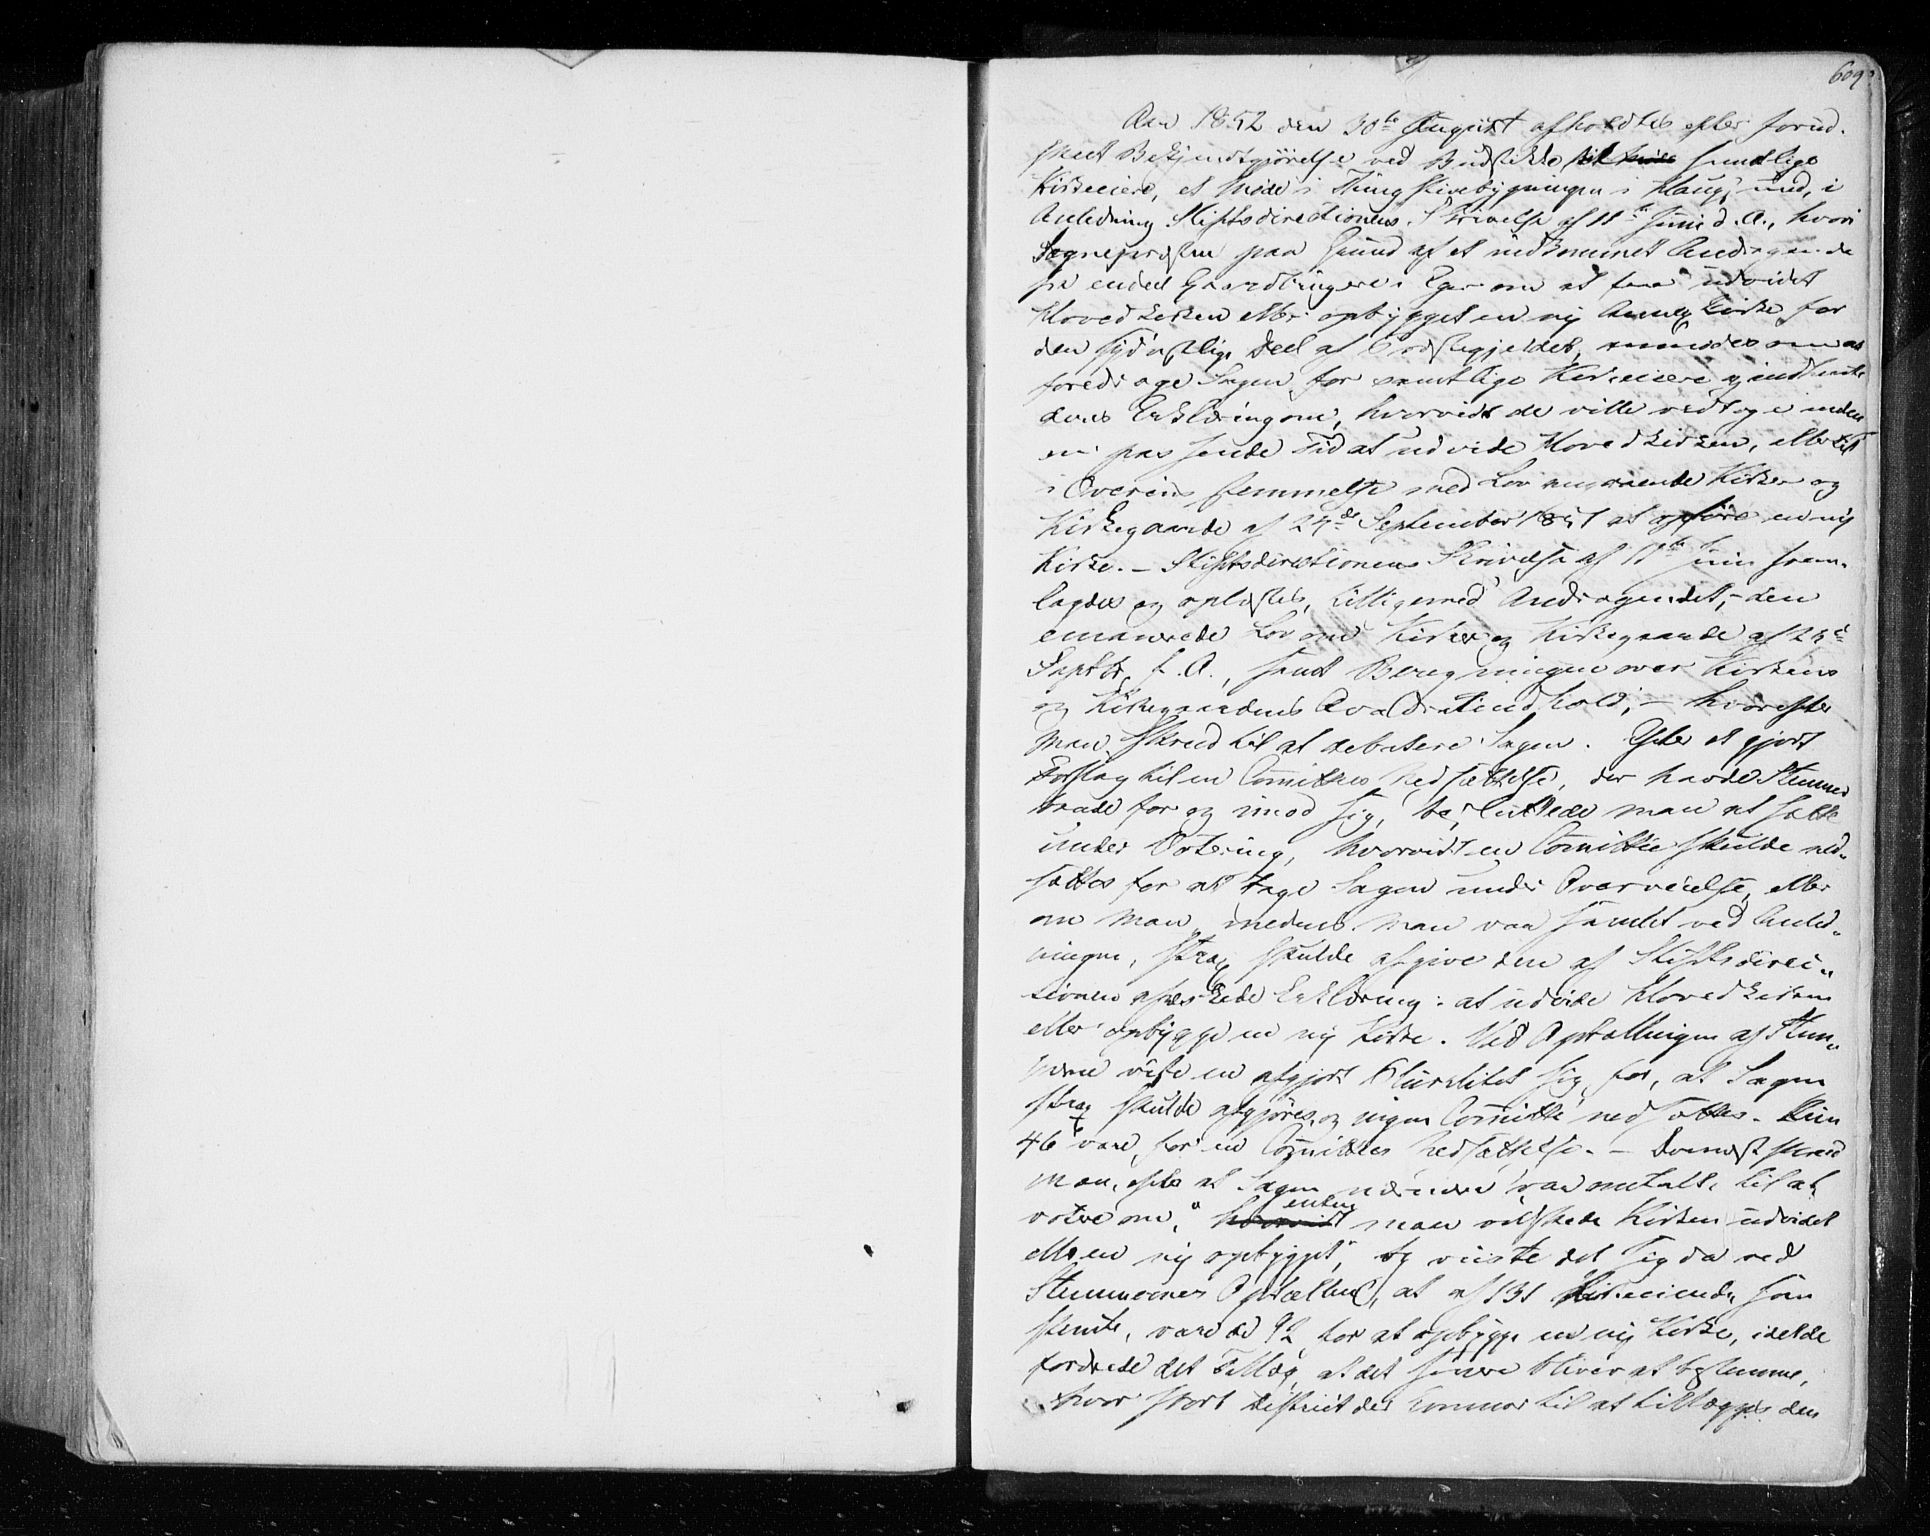 609
Aar 1852 den 30te August afholdtes efter forud-
gaaet Bekjendtgjørelse ved Budstikke til samtlige
Kirkeeiere, et Møde i Thingstuebygningen i Haug, i
Anledning Stiftsdirectionens Skrivelse af 11te Juni d. A., hvori
Sognepræsten paa Grund af et indkommet Andragende
fra endeel Gaardbrugere i Eger om at faae udvidet
Hovedkirken eller opbygget en ny Annexkirke for
den sydøstlige Deel af Præstegjeldet, anmodes om at
foredrage Sagen for samtlige Kirkeeiere og indhente
deres Erklæring om, hvorvidt de ville vedtage inden
en passende Tid at udvide Hovedkirken, eller
i Overeensstemmelse med Lov angaaende Kirker og
Kirkegaarde af 24de September 1851 at opføre en ny
Kirke. – Stiftsdirectionens Skrivelse af 11te Juni frem-
lagdes og oplæstes, tilligemed Andragendet, – den
emanerede Lov om Kirker og Kirkegaarde af 24de
Septbr. f. A., samt Beregningen over Kirkens
og Kirkegaardens Qvadratindhold, – hvorefter
man skred til at debatere Sagen. Efter et gjort
Forslag til en Comittees Nedsættelse, der havde Stemmer
baade for og imod sig, besluttede man at sætte
under Votering, hvorvidt en Comittee skulde ned-
sættes for at tage Sagen under Overveielse, eller
om man, medens man var samlet ved Anled-
ningen, strax skulde afgive den af Stiftsdirec-
tionen æskede Erklæring: at udvide Hovedkirken
eller opbygge en ny Kirke. Ved Optællingen af Stem-
merne viste en afgjort Pluralitet sig for, at Sagen
strax skulde afgjøres, og ingen Comittee nedsættes. Kun
46 vare for en Comittees Nedsættelse. – Dernæst skred
man, efter at Sagen nærmere var omtalt, til at
votere om, "hvorvidt enten man ønskede Kirken udvidet
eller en ny opbygget", og viiste det sig da ved
Stemmernes Optælling, at af 131 Kirkeeiende, som
stemte, vare de 92 for at opbygge en ny Kirke, idet de
fordrede det Tillæg, at det senere bliver at bestemme,
hvor stort District der kommer til at tillægges den